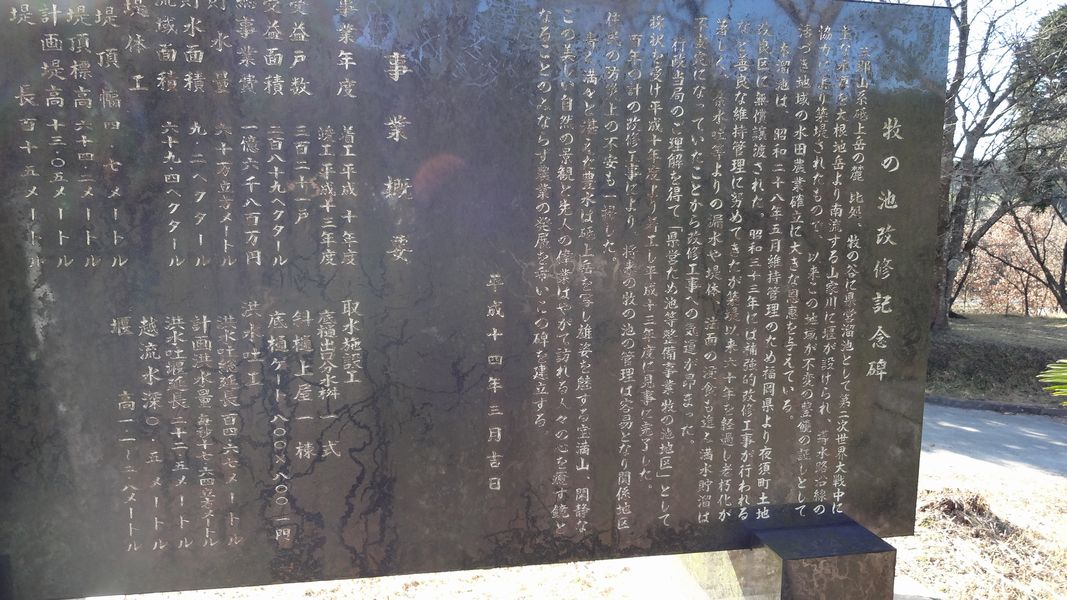 牧の池改修記念碑
三郡山系砥上岳の麓、比処、牧の谷に県営溜池として第二次世界大戦中に
を大根地岳より南流する山家川に堰が設けられ、導水路沿線の
協力により築堤されたもので、以来この地域が不変の豊饒の証しとして
活づき地域の水田農業確立に大きな恩恵を与えている。
本溜池は、昭和二十八年五月維持管理のため福岡県より夜須町土地
改良区に無償譲渡された。昭和三十三年には補強的改修工事が行われる
など善良な維持管理に努めてきたが築堤以来六十年を経過し老朽化が
著しく、余水吐等よりの漏水や堤体、法面の浸食も進み満水貯溜は
不可能になっていたことから改修工事への気運が昂まった。
行政当局のご理解を得て「県営ため池等整備事業牧の池地区」として
採択を受け平成十年度より着工し平成十三年度に見事に完了した。
百年の計の改修工事により、将来の牧の池の管理は容易となり関係地区
住民の防災上の不安も一掃した。
青く満々と湛えた豊水は砥上岳を写し雄姿を魅する空満山、閑静な
この美しい自然の景観と先人の偉業はやがて訪れる人々の心を癒す鏡と
なることのみならず農業の発展を希いこの碑を建立する。
平成十四年三月吉日
事業概要
事業年度 着工平成十年度
竣工平成十三年度
受益戸数 三百二十一戸
受益面積 二百八十九ヘクタール
総事業費 一億六千八百万円
貯水量 六十万立方メートル
貯水面積 九・二ヘクタール
流域面積 六十九・四ヘクタール
堤体工
堤頂幅 四・七メートル
堤頂標高 六十四・二メートル
計画堤高 十三・〇五メートル
堤長 百十五メートル
取水施設工
底樋出口分水桝 一式
斜樋上屋 一棟
底樋ゲート 八〇〇×八〇〇 一門
洪水吐工
洪水吐総延長 百四・六七メートル
計画洪水量 毎秒十七・六四立方メートル
洪水吐堰延長 二十一・五メートル
越流水深 〇・五メートル
堰高 一・一～二・八メートル